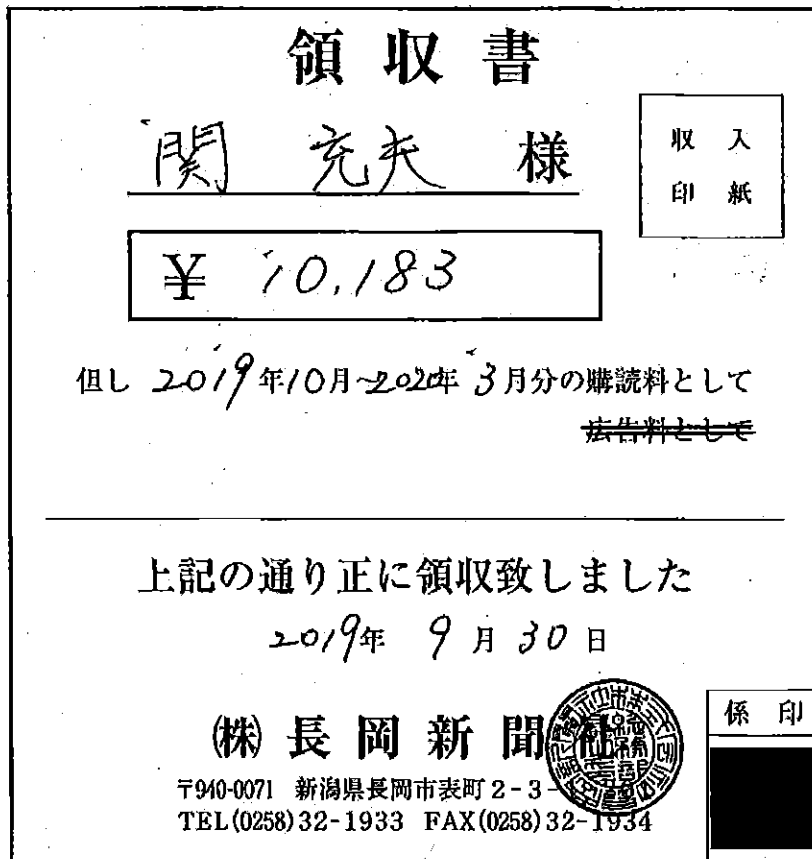 領収書
関 充夫 様
収入
印紙
¥ 10,183
但し 2019年10月~2020年 3月分の購読料として
広告料として
上記の通り正に領収致しました
2019年 9月30日
係印
(株)長岡新聞社
〒940-0071 新潟県長岡市表町2-3-
TEL(0258)32-1933 FAX(0258)32-1934